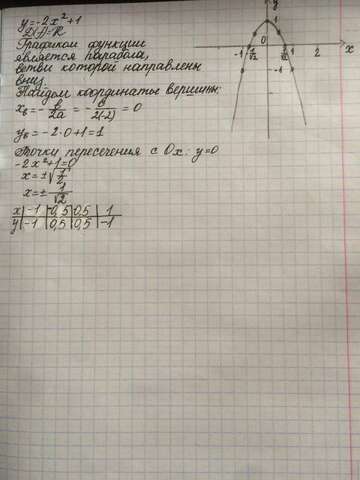 y=-2x²+1
D(f)=R
Графиком функции
является парабола,
ветви которой направлены
вниз
Найдём координаты вершины:
x₀ = -b/2a = -0/2(-2) = 0
y₀ = -2·0+1=1
Точки пересечения с Ox: y=0
-2x²+1=0
x=±√1/2
x=±1/√2
x | -1 | -0,5 | 0,5 | 1
y | -1 | 0,5 | 0,5 | -1
y
1
0
-1
1
2
x
-1